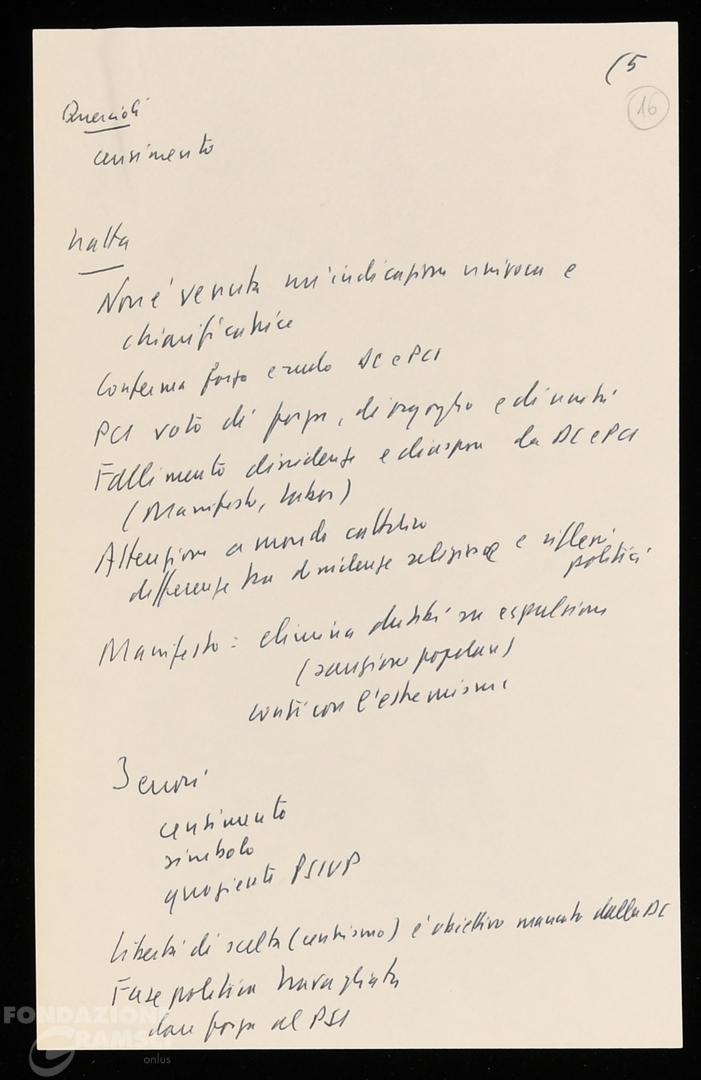 (5
16
Quercioli
censimento
Natta
Non è venuta un'indicazione univoca e
chiarificatrice
Conferma forza e ruolo DC e PCI
PCI voto di forza, di orgoglio e di unità
Fallimento dissidenze e diaspore da DC e PCI
(Manifesto, Labor)
Attenzione a mondo cattolico
differenze tra dissidenze religiose e riflessi
politici
Manifesto: elimina dubbi su espulsione
(sanzione popolare)
conti con l'estremismo
3 errori
censimento
simbolo
quoziente PSIUP
Libertà di scelta (centrismo) è obiettivo mancato dalla DC
Fase politica travagliata
dare forza al PSI
FONDAZIONE
GRAMSCI
onlus